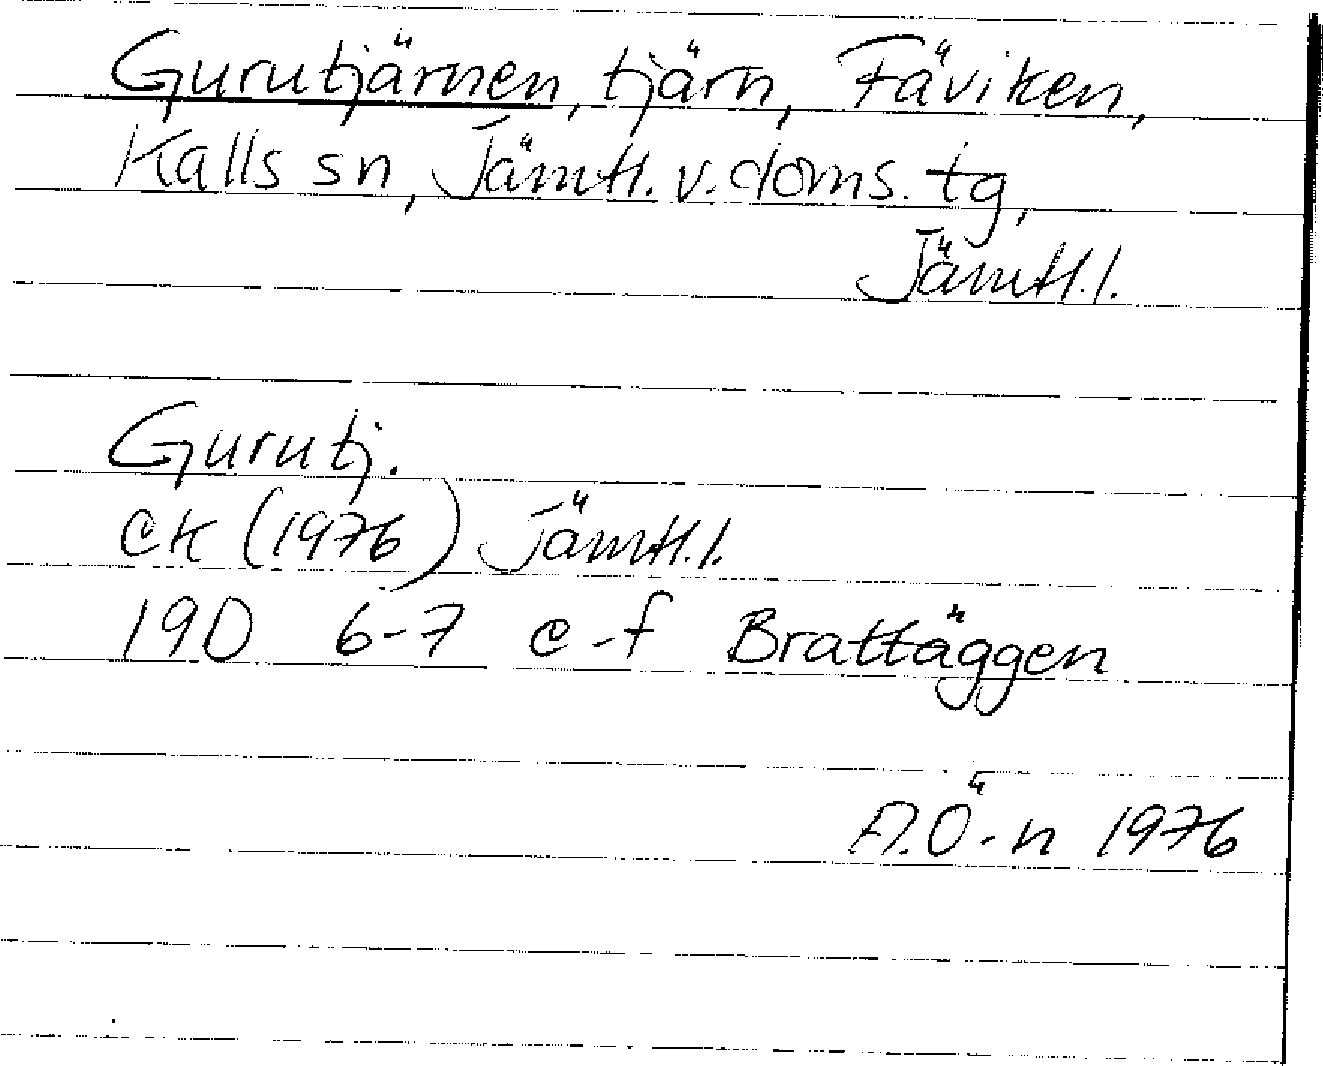 Gurutjärnen, tjärn, Fäviken,
Kalls sn, Jämtl. v. doms. tg,
Jämtl. l.
Gurutj.
ek (1976) Jämtl. l.
19D 6-7 e-f Brattäggen
A.Ö-n 1976